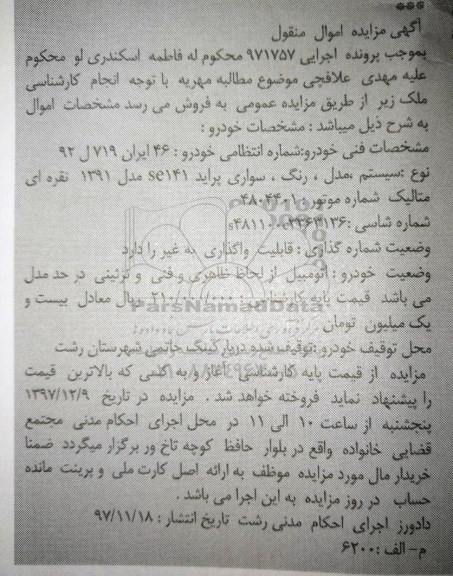 ***
آگهی مزایده اموال منقول
بموجب پرونده اجرایی ۹۷۱۷۵۷ محکوم له فاطمه اسکندری لو محکوم
علیه مهدی علافچی موضوع مطالبه مهریه با توجه انجام کارشناسی
ملک زیر از طریق مزایده عمومی به فروش می رسد مشخصات اموال
به شرح ذیل میباشد : مشخصات خودرو :
مشخصات فنی خودرو:شماره انتظامی خودرو : ۴۶ ایران ۷۱۹ ل ۹۲
نوع :سیستم ،مدل ، رنگ ، سواری پراید se۱۴۱ مدل ۱۳۹۱ نقره ای
متالیک شماره موتور: ۴۸۰۴۴۰۱
شماره شاسی :
وضعیت شماره گذاری : قابلیت واگذاری به غیر را دارد
وضعیت خودرو : اتومبیل از لحاظ ظاهری و فنی و تزئینی در حد مدل
می باشد قیمت پایه کارشناسی : ۲۱۰/۰۰۰/۰۰۰ ریال معادل بیست و
یک میلیون تومان
ParsNamadData
محل توقیف خودرو :توقیف شده در پارکینگ حاتمی شهرستان رشت
مزایده از قیمت پایه کارشناسی آغاز و به کسی که بالاترین قیمت
را پیشنهاد نماید فروخته خواهد شد . مزایده در تاریخ ۱۳۹۷/۱۲/۹
پنجشنبه از ساعت ۱۰ الی ۱۱ در محل اجرای احکام مدنی مجتمع
قضایی خانواده واقع در بلوار حافظ کوچه تاخ ور برگزار میگردد ضمنا
خریدار مال مورد مزایده موظف به ارائه اصل کارت ملی و پرینت مانده
حساب در روز مزایده به این اجرا می باشد .
دادورز اجرای احکام مدنی رشت تاریخ انتشار : ۹۷/۱۱/۱۸
م - الف : ۶۲۰۰